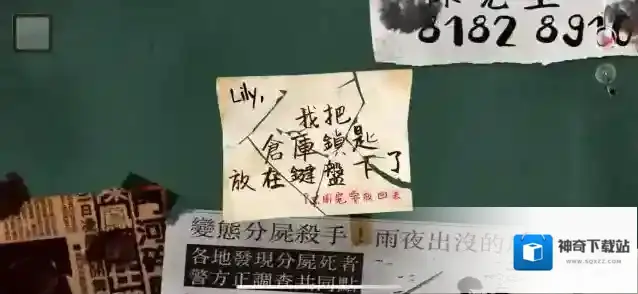 8182 89
Lily,
我把
倉庫鎖匙
放在鍵盤下了
用完要放回去
變態分屍殺手！雨夜出沒的
各地發現分屍死者
警方正調查共同點
神奇下载站